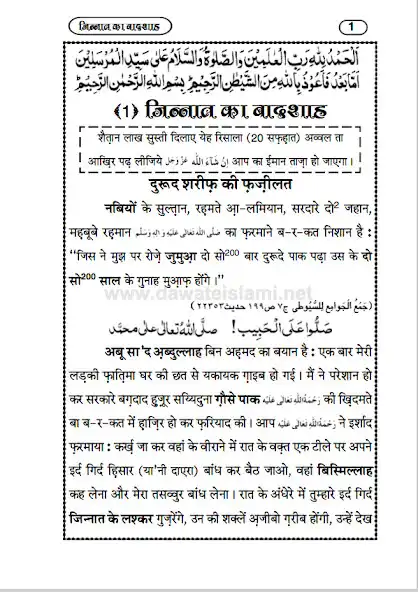 जिन्नात का बादशाह
1
اَلْحَمْدُ لِلّٰهِ رَبِّ الْعٰلَمِيْنَ وَالصَّلٰوةُ وَالسَّلَامُ عَلٰى سَيِّدِ الْمُرْسَلِيْنَ
اَمَّا بَعْدُ فَاَعُوْذُ بِاللّٰهِ مِنَ الشَّيْطٰنِ الرَّجِيْمِ بِسْمِ اللّٰهِ الرَّحْمٰنِ الرَّحِيْمِ
(1) जिन्नात का बादशाह
शैतान लाख सुस्ती दिलाए येह रिसाला (20 सफ़हात) अव्वल ता
आख़िर पढ़ लीजिये اِنْ شَآءَ اللّٰه عَزَّوَجَلَّ आप का ईमान ताज़ा हो जाएगा ।
दुरूद शरीफ़ की फ़ज़ीलत
नबियों के सुल्तान, रहमते आ-लमियान, सरदारे दो² जहान,
महबूबे रहमान صَلَّى اللّٰهُ تَعَالٰى عَلَيْهِ وَاٰلِهٖ وَسَلَّم का फ़रमाने ब-र-कत निशान है :
“जिस ने मुझ पर रोज़े जुमुआ दो सो²⁰⁰ बार दुरूदे पाक पढ़ा उस के दो
सो²⁰⁰ साल के गुनाह मुआफ़ होंगे ।”
www.dawateislami.net
(جَمْعُ الْجَوامِع لِلسُّيُوطى ج٧ ص١٩٩ حديث٢٢٣٥٣)
صَلُّوْا عَلَى الْحَبِيْب! صَلَّى اللّٰهُ تَعَالٰى عَلٰى مُحَمَّد
अबू सा'द अब्दुल्लाह बिन अहमद का बयान है : एक बार मेरी
लड़की फ़ातिमा घर की छत से यकायक ग़ाइब हो गई । मैं ने परेशान हो
कर सरकारे बग़दाद हुज़ूर सय्यिदुना ग़ौसे पाक رَحْمَةُ اللّٰهِ تَعَالٰى عَلَيْه की ख़िदमते
बा ब-र-कत में हाज़िर हो कर फ़रियाद की । आप رَحْمَةُ اللّٰهِ تَعَالٰى عَلَيْه ने इर्शाद
फ़रमाया : कर्ख़ जा कर वहां के वीराने में रात के वक़्त एक टीले पर अपने
इर्द गिर्द हिसार (या'नी दाएरा) बांध कर बैठ जाओ, वहां बिस्मिल्लाह
कह लेना और मेरा तसव्वुर बांध लेना । रात के अंधेरे में तुम्हारे इर्द गिर्द
जिन्नात के लश्कर गुज़रेंगे, उन की शक्लें अजीबो ग़रीब होंगी, उन्हें देख